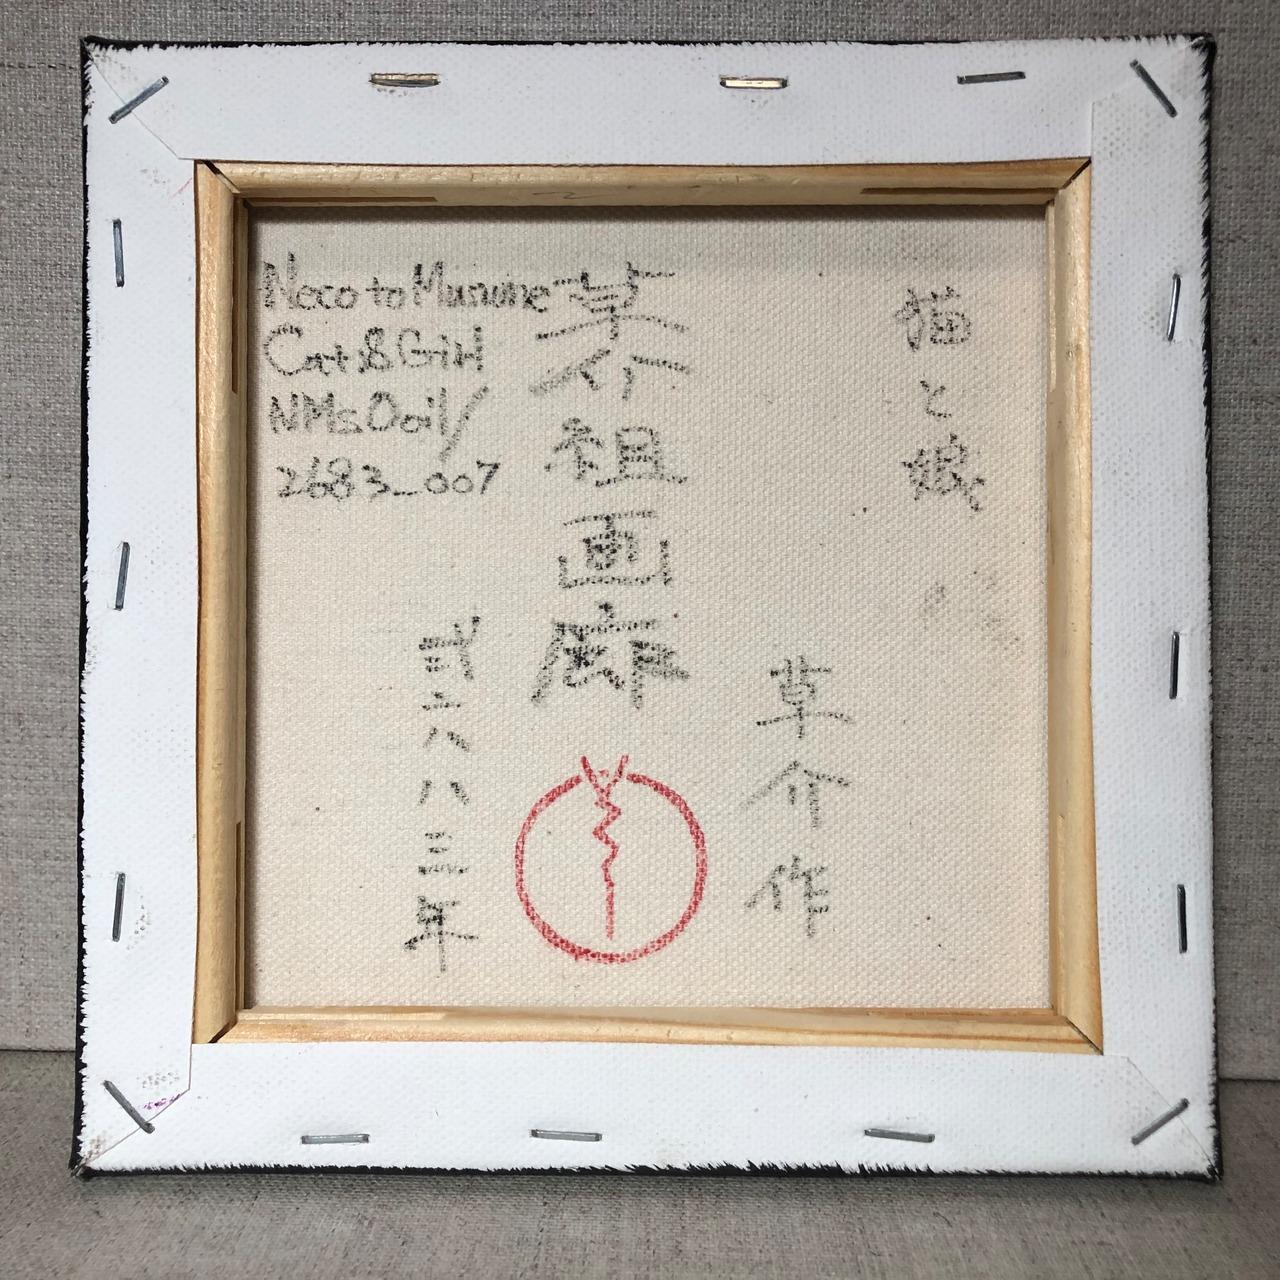 猫と娘
草介作
草介祖画廊
弐六八三年
Neco to Musume
Cat & Girl
NMs0oil/
2683_007